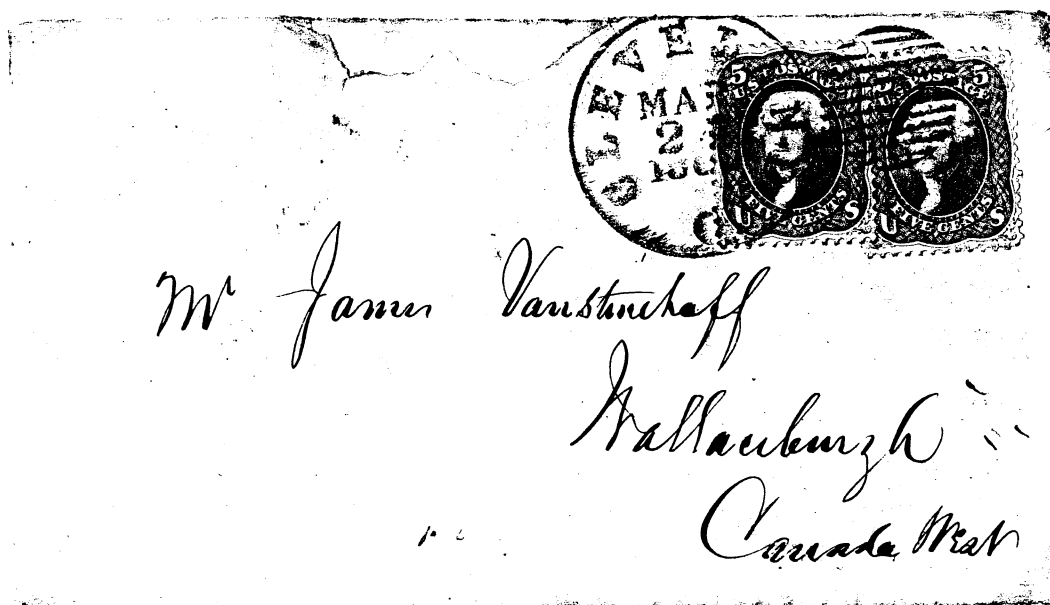 CLEVE
MA
2
186
5 U.S. POSTAGE 5
FIVE CENTS
U S
5 U.S. POSTAGE 5
FIVE CENTS
U S
Mr James Vanstinehoff
Wallaceburgh
Canada West